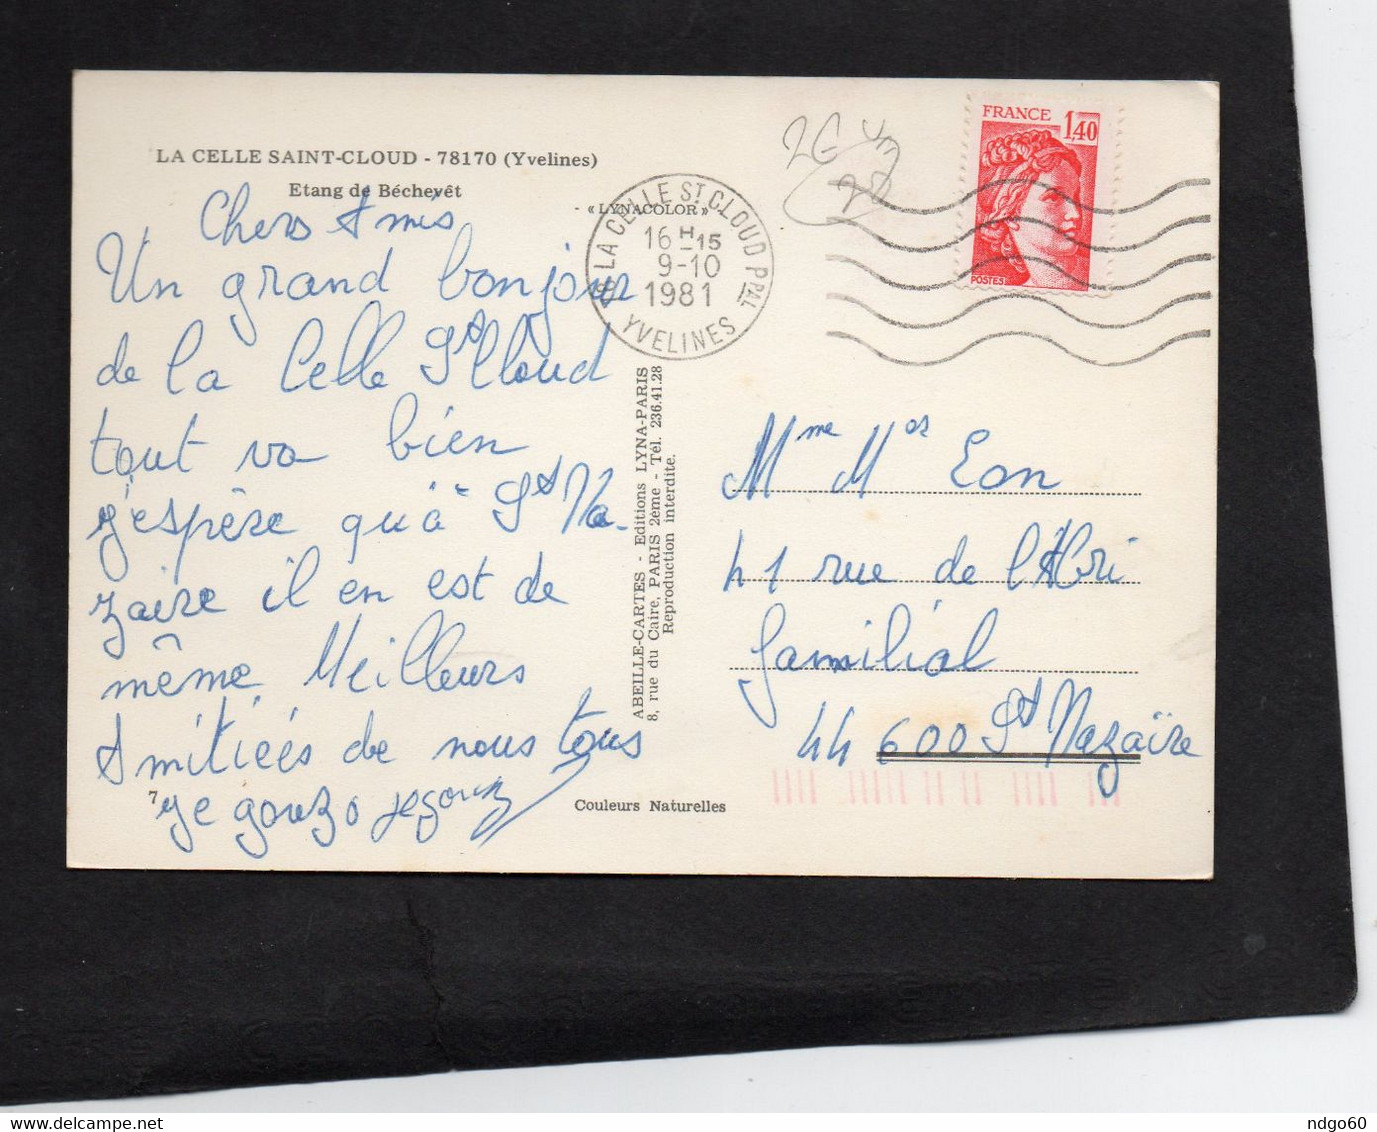 LA CELLE SAINT-CLOUD - 78170 (Yvelines)
Etang de Béchevêt
- « LYNACOLOR »
Chers Amis
Un grand bonjour
de la Celle St Cloud
tout va bien
j'espère qu'à St Na-
zaire il en est de
même Meilleurs
Amitiées de nous tous
7
Couleurs Naturelles
LA CELLE ST CLOUD PPAL
16H-15
9-10
1981
YVELINES
FRANCE
1,40
POSTES
ABEILLE-CARTES - Editions LYNA-PARIS
8, rue du Caire, PARIS 2ème - Tél. 236.41.28
Reproduction interdite.
Mme Mr Eon
41 rue de l'Abri
familial
44 600 St Nazaïre
delcampe.net
ndgo60